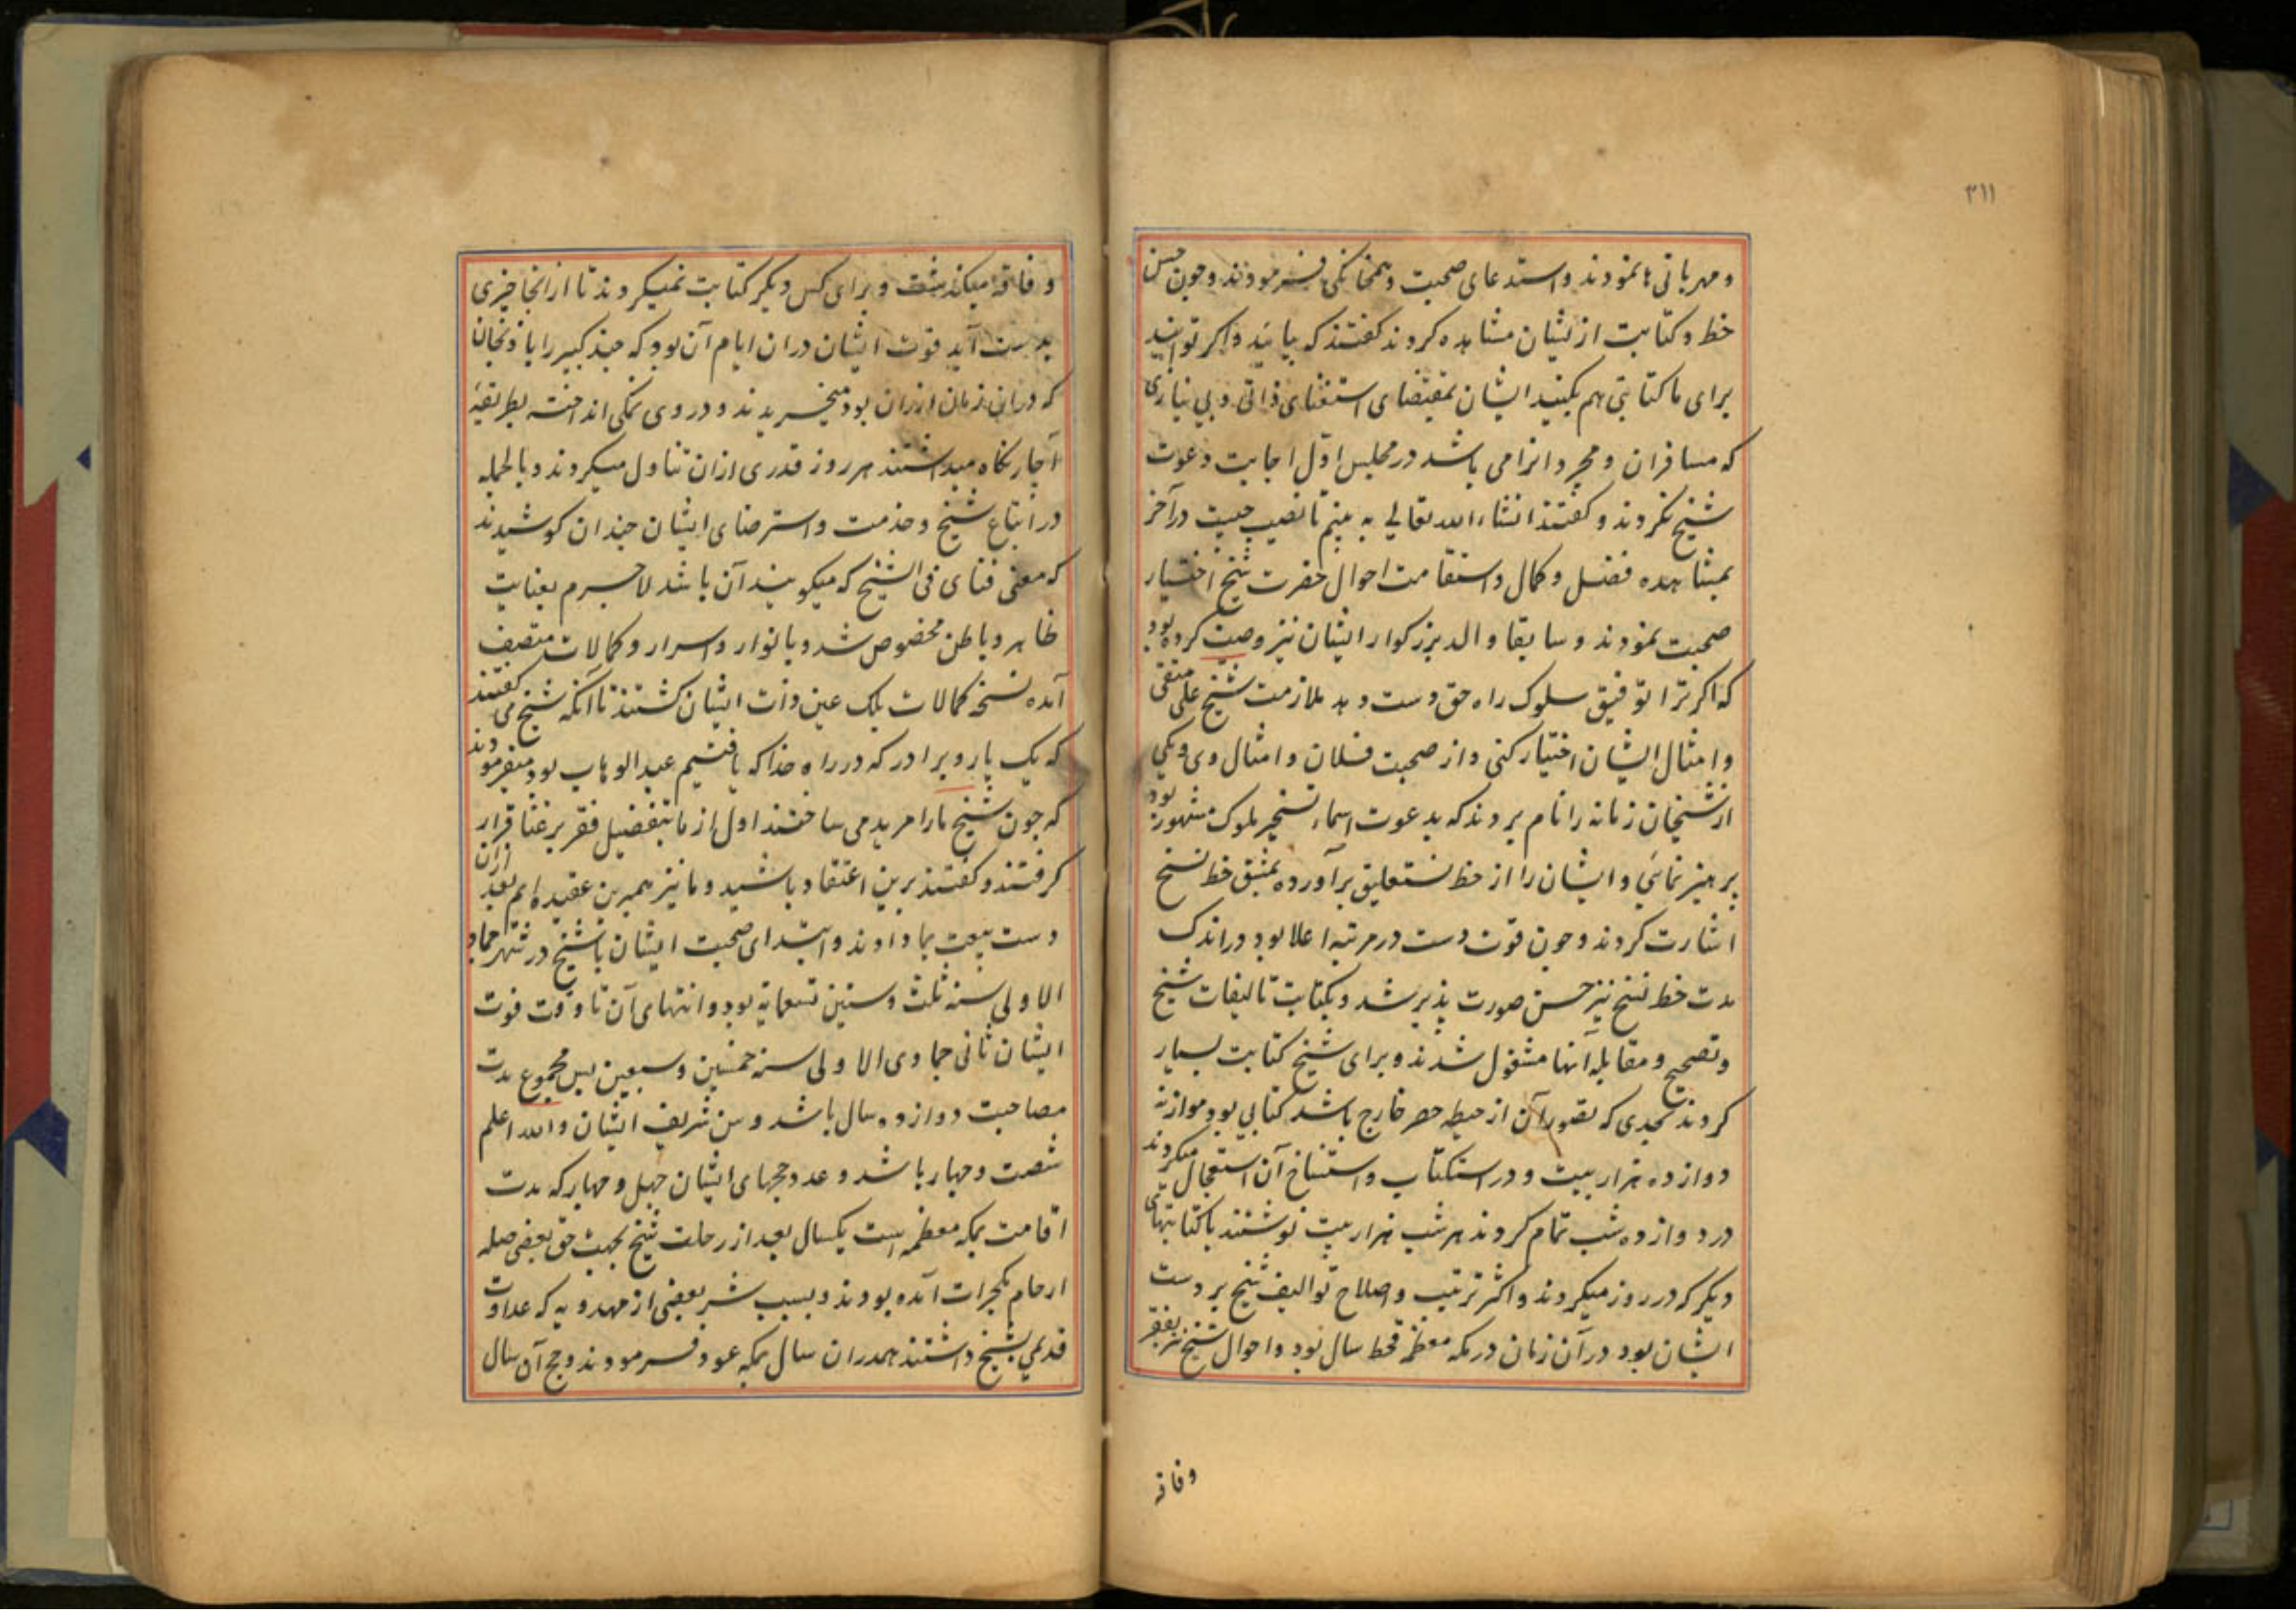 ۳۱۱
و مهربانی ها نمودند و استدعای صحبت و همخانگی فرمودند و چون حسن
خط و کتابت از یشان مشاهده کردند گفتند که بیائید و اگر توانید
برای ما کتابتی هم بکنید ایشان بمقتضای استغنای ذاتی و بی نیازی
که مسافران و مجردانرا می باشد در مجلس اول اجابت دعوت
شیخ نکردند و گفتند انشاء الله تعالی به بینم تا نصیب چیست در آخر
بمشاهده فضل و کمال و استقامت احوال حضرت شیخ اختیار
صحبت نمودند و سابقا والد بزرگوار ایشان نیز وصیت کرده بود
که اگر ترا توفیق سلوک راه حق دست دهد ملازمت شیخ علی متقی
و امثال ایشان اختیار کنی و از صحبت فلان و امثال وی و یکی
از شیخان زمانه را نام بردند که بدعوت اسماء تسخیر ملوک مشهور بود
پرهیز نمائی و ایشان را از خط نستعلیق برآورده بمشق خط نسخ
اشارت کردند و چون قوت دست در مرتبه اعلا بود در اندک
مدت خط نسخ نیز حسن صورت پذیر شد و بکتابت تالیفات شیخ
و تصحیح و مقابله آنها مشغول شدند و برای شیخ کتابت بسیار
کردند بحدی که تصور آن از حیطه حصر خارج باشد کتابی بود موازنه
دوازده هزار بیت و در استکتاب و استنساخ آن استعجال میکردند
در دوازده شب تمام کردند هر شب هزار بیت نوشتند با کتابتهای
دیگر که در روز میکردند و اکثر ترتیب و اصلاح توالیف شیخ بر دست
ایشان بود در آن زمان در مکه معظمه قحط سال بود و احوال شیخ نیز بفقر
وفاقه
و فاقه میگذشت و برای کس دیگر کتابت نمیکردند تا از انجا چیزی
بدست آید قوت ایشان دران ایام آن بود که چند کبیر را بادنجان
که دران زمان ارزان بود میخریدند و در وی نمکی انداخته بطریقهٔ
آچار نگاه میداشتند هر روز قدری ازان تناول میکردند و بالجمله
در اتباع شیخ و خدمت و استرضای ایشان چندان کوشیدند
که معنی فنای فی الشیخ که میگویند آن باشد لاجرم بعنایت
ظاهر و باطن مخصوص شد و بانوار و اسرار و کمالات متصف
آمده نسخه کمالات بلک عین ذات ایشان گشتند تا آنکه شیخ می گفتند
که یک یار و برادر که در راه خدا که یافتیم عبدالوهاب بود میفرمودند
که چون شیخ ما را مرید می ساختند اول از ما بتفضیل فقر بر غنا قرار
گرفتند و گفتند برین اعتقاد باشید و ما نیز همبرین عقیده ایم بعد ازان
دست بیعت بما دادند و ابتدای صحبت ایشان با شیخ در شهر جماد
الاولی سنه ثلث و ستین تسعمایه بود و انتهای آن تا وقت فوت
ایشان ثانی جمادی الاولی سنه خمس و سبعین پس مجموع مدت
مصاحبت دوازده سال باشد و سن شریف ایشان والله اعلم
شصت و چهار باشد و عدد حجهای ایشان چهل و چهار که مدت
اقامت بمکه معظمه است یکسال بعد از رحلت شیخ بجهت حق بعضی صله
ارحام بگجرات آمده بودند و بسبب شر بعضی از مهدویه که عداوت
قدیمی بشیخ داشتند همدران سال بمکه عود فرمودند و حج آن سال